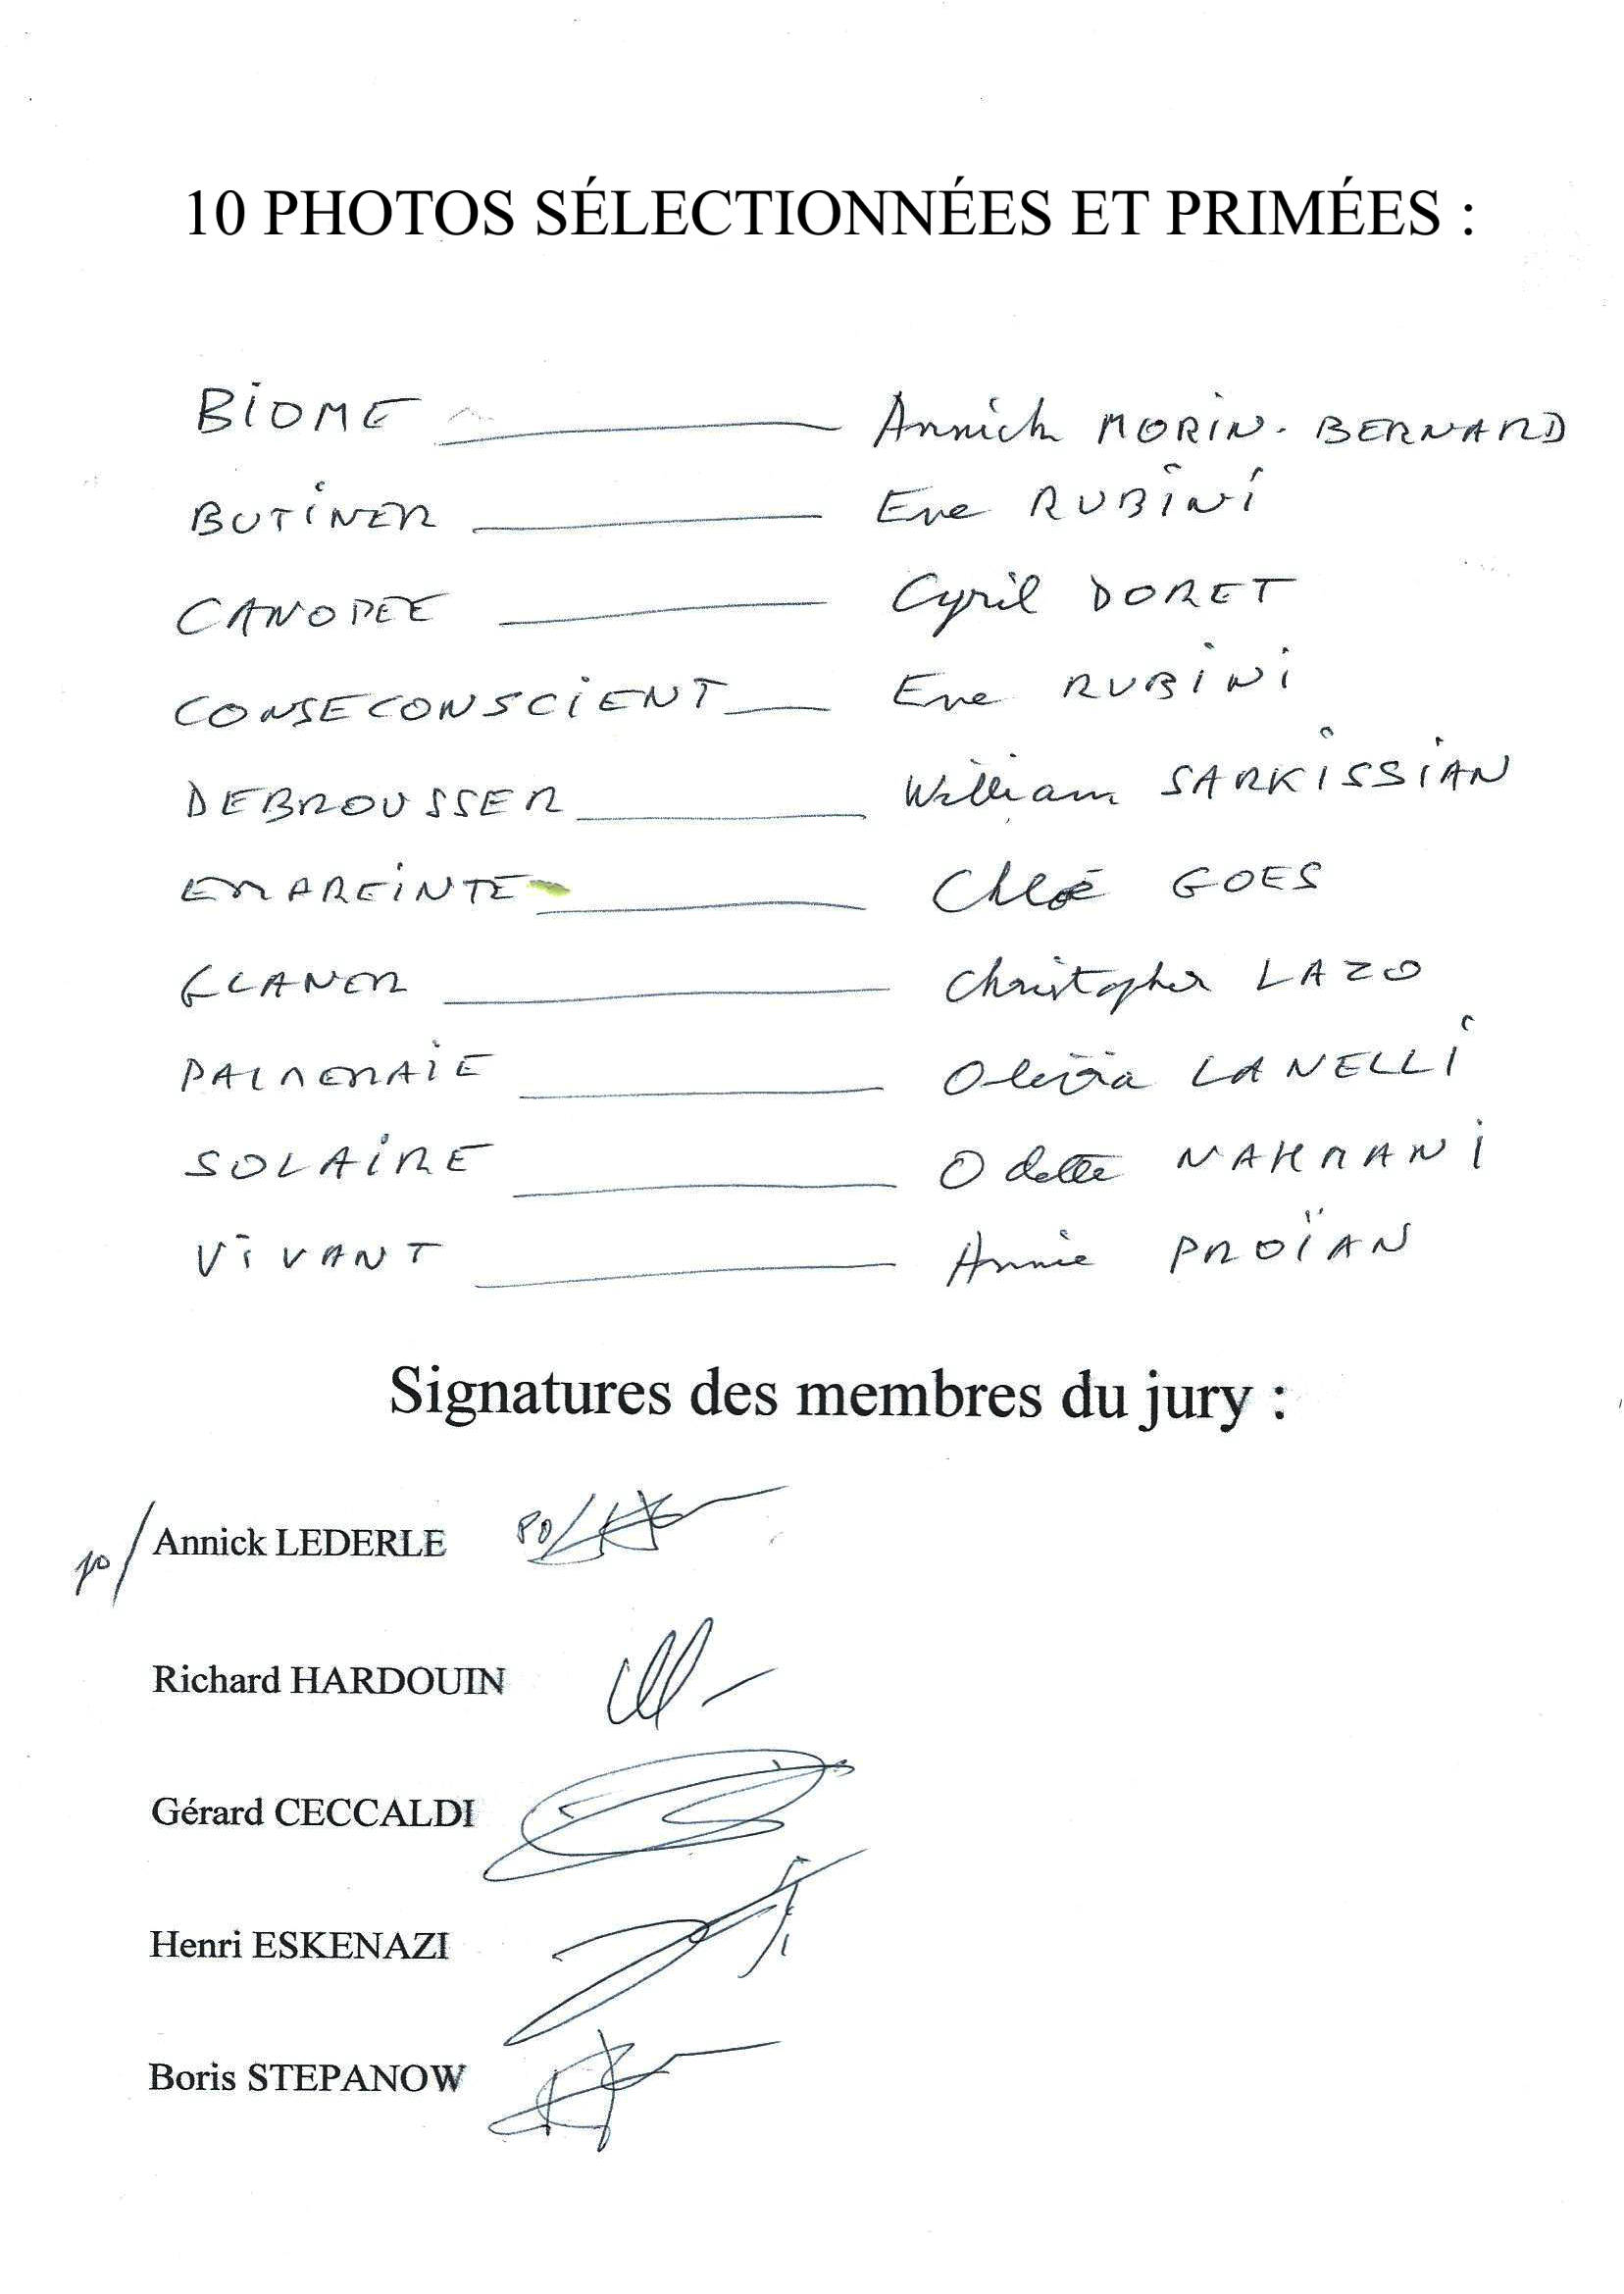 10 PHOTOS SÉLECTIONNÉES ET PRIMÉES :
BIOME Annick MORIN-BERNARD
BUTINER Eve RUBINI
CANOPEE Cyril DORET
CONSECONSCIENT Eve RUBINI
DEBROUSSER William SARKISSIAN
EMPREINTE Chloé GOES
GLANER Christopher LAZO
PALMERAIE Olivia LANELLI
SOLAIRE Odette NAHMANI
VIVANT Annie PROÏAN
Signatures des membres du jury :
po/ Annick LEDERLE PO/
Richard HARDOUIN
Gérard CECCALDI
Henri ESKENAZI
Boris STEPANOW